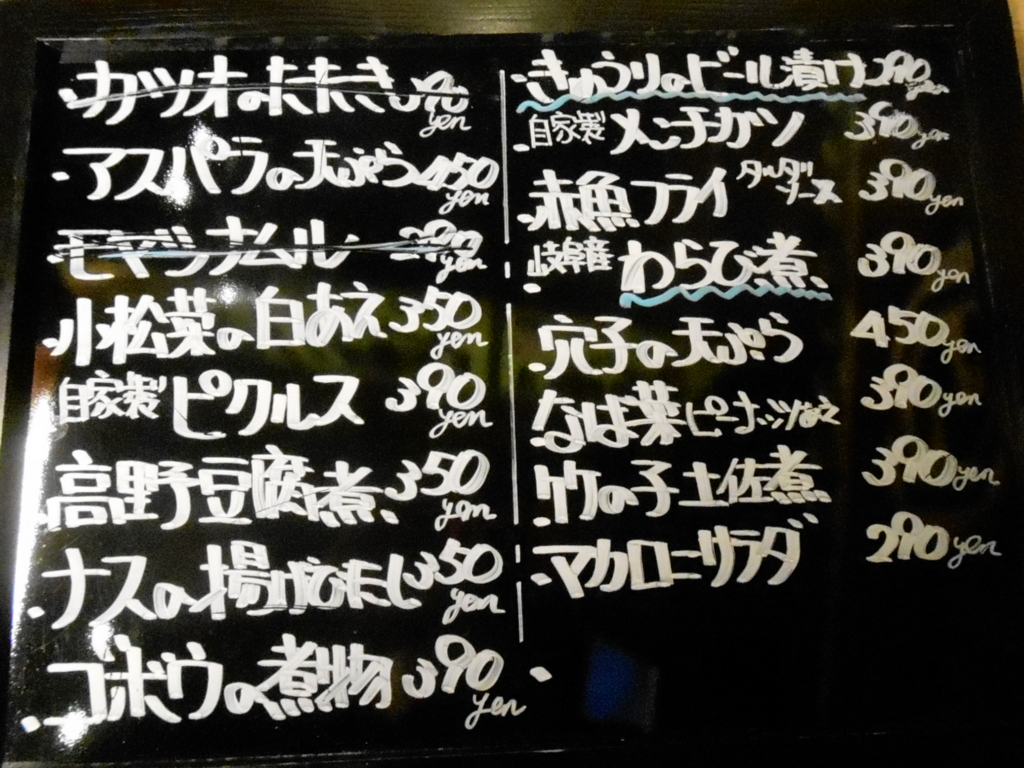 カツオのたたき 390yen
・アスパラの天ぷら 450yen
モヤシナムル 290yen
・小松菜の白あえ 350yen
・自家製ピクルス 390yen
・高野豆腐煮 350yen
・ナスの揚げびたし 350yen
・ゴボウの煮物 390yen
・きゅうりのビール漬け 290yen
・自家製メンチカツ 390yen
・赤魚フライ タルタルソース 390yen
・岐阜産わらび煮 390yen
・穴子の天ぷら 450yen
・なば菜ピーナッツあえ 390yen
・竹の子土佐煮 390yen
・マカローサラダ 290yen
・